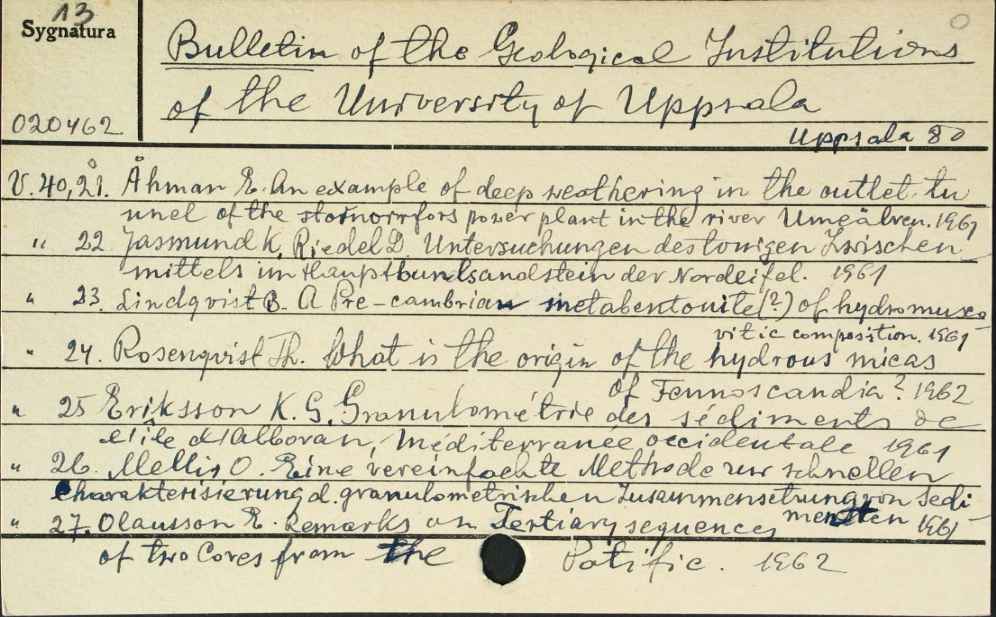 13
Sygnatura
020462
Bulletin of the Geological Institutions
of the University of Uppsala
Uppsala 80
V. 40, 21. Åhman E. An example of deep weathering in the outlet tu
nnel of the stornorrfors power plant in the river Umeälven. 1961
" 22 Jasmund K, Riedel D. Untersuchungen des tonigen Zwischen
mittels im Hauptbundsandstein der Nordeifel. 1961
" 23. Lindqvist B. A Pre-cambrian metabentonite (?) of hydromusco
vitic composition. 1961
" 24. Rosenqvist Th. What is the origin of the hydrous micas
of Fennoscandia? 1962
" 25 Eriksson K. G. Granulométrie des sédiments de
l'île d'Alboran, Méditerranée occidentale 1961
" 26. Mellis O. Eine vereinfachte Methode zur schnellen
Charakterisierung d. granulometrischen Zusammensetzung von Sedi-
menten 1961
" 27. Olausson E. Remarks on Tertiary sequences
of two Cores from the Patific. 1962